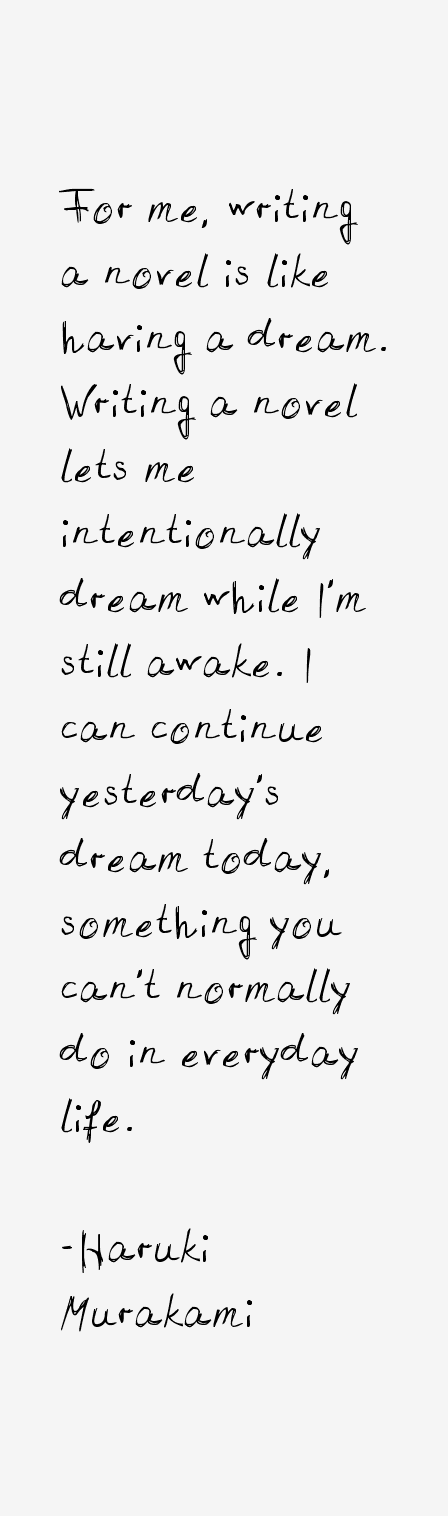 For me, writing
a novel is like
having a dream.
Writing a novel
lets me
intentionally
dream while I'm
still awake. I
can continue
yesterday's
dream today,
something you
can't normally
do in everyday
life.

-Haruki
Murakami